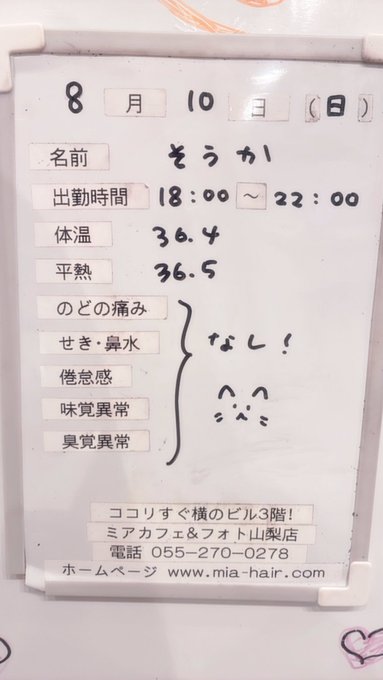 8月10日(日)
名前 そうか
出勤時間 18:00～22:00
体温 36.4
平熱 36.5
のどの痛み
せき・鼻水 なし!
倦怠感
味覚異常
臭覚異常
ココリすぐ横のビル3階!
ミアカフェ&フォト山梨店
電話 055-270-0278
ホームページ www.mia-hair.com